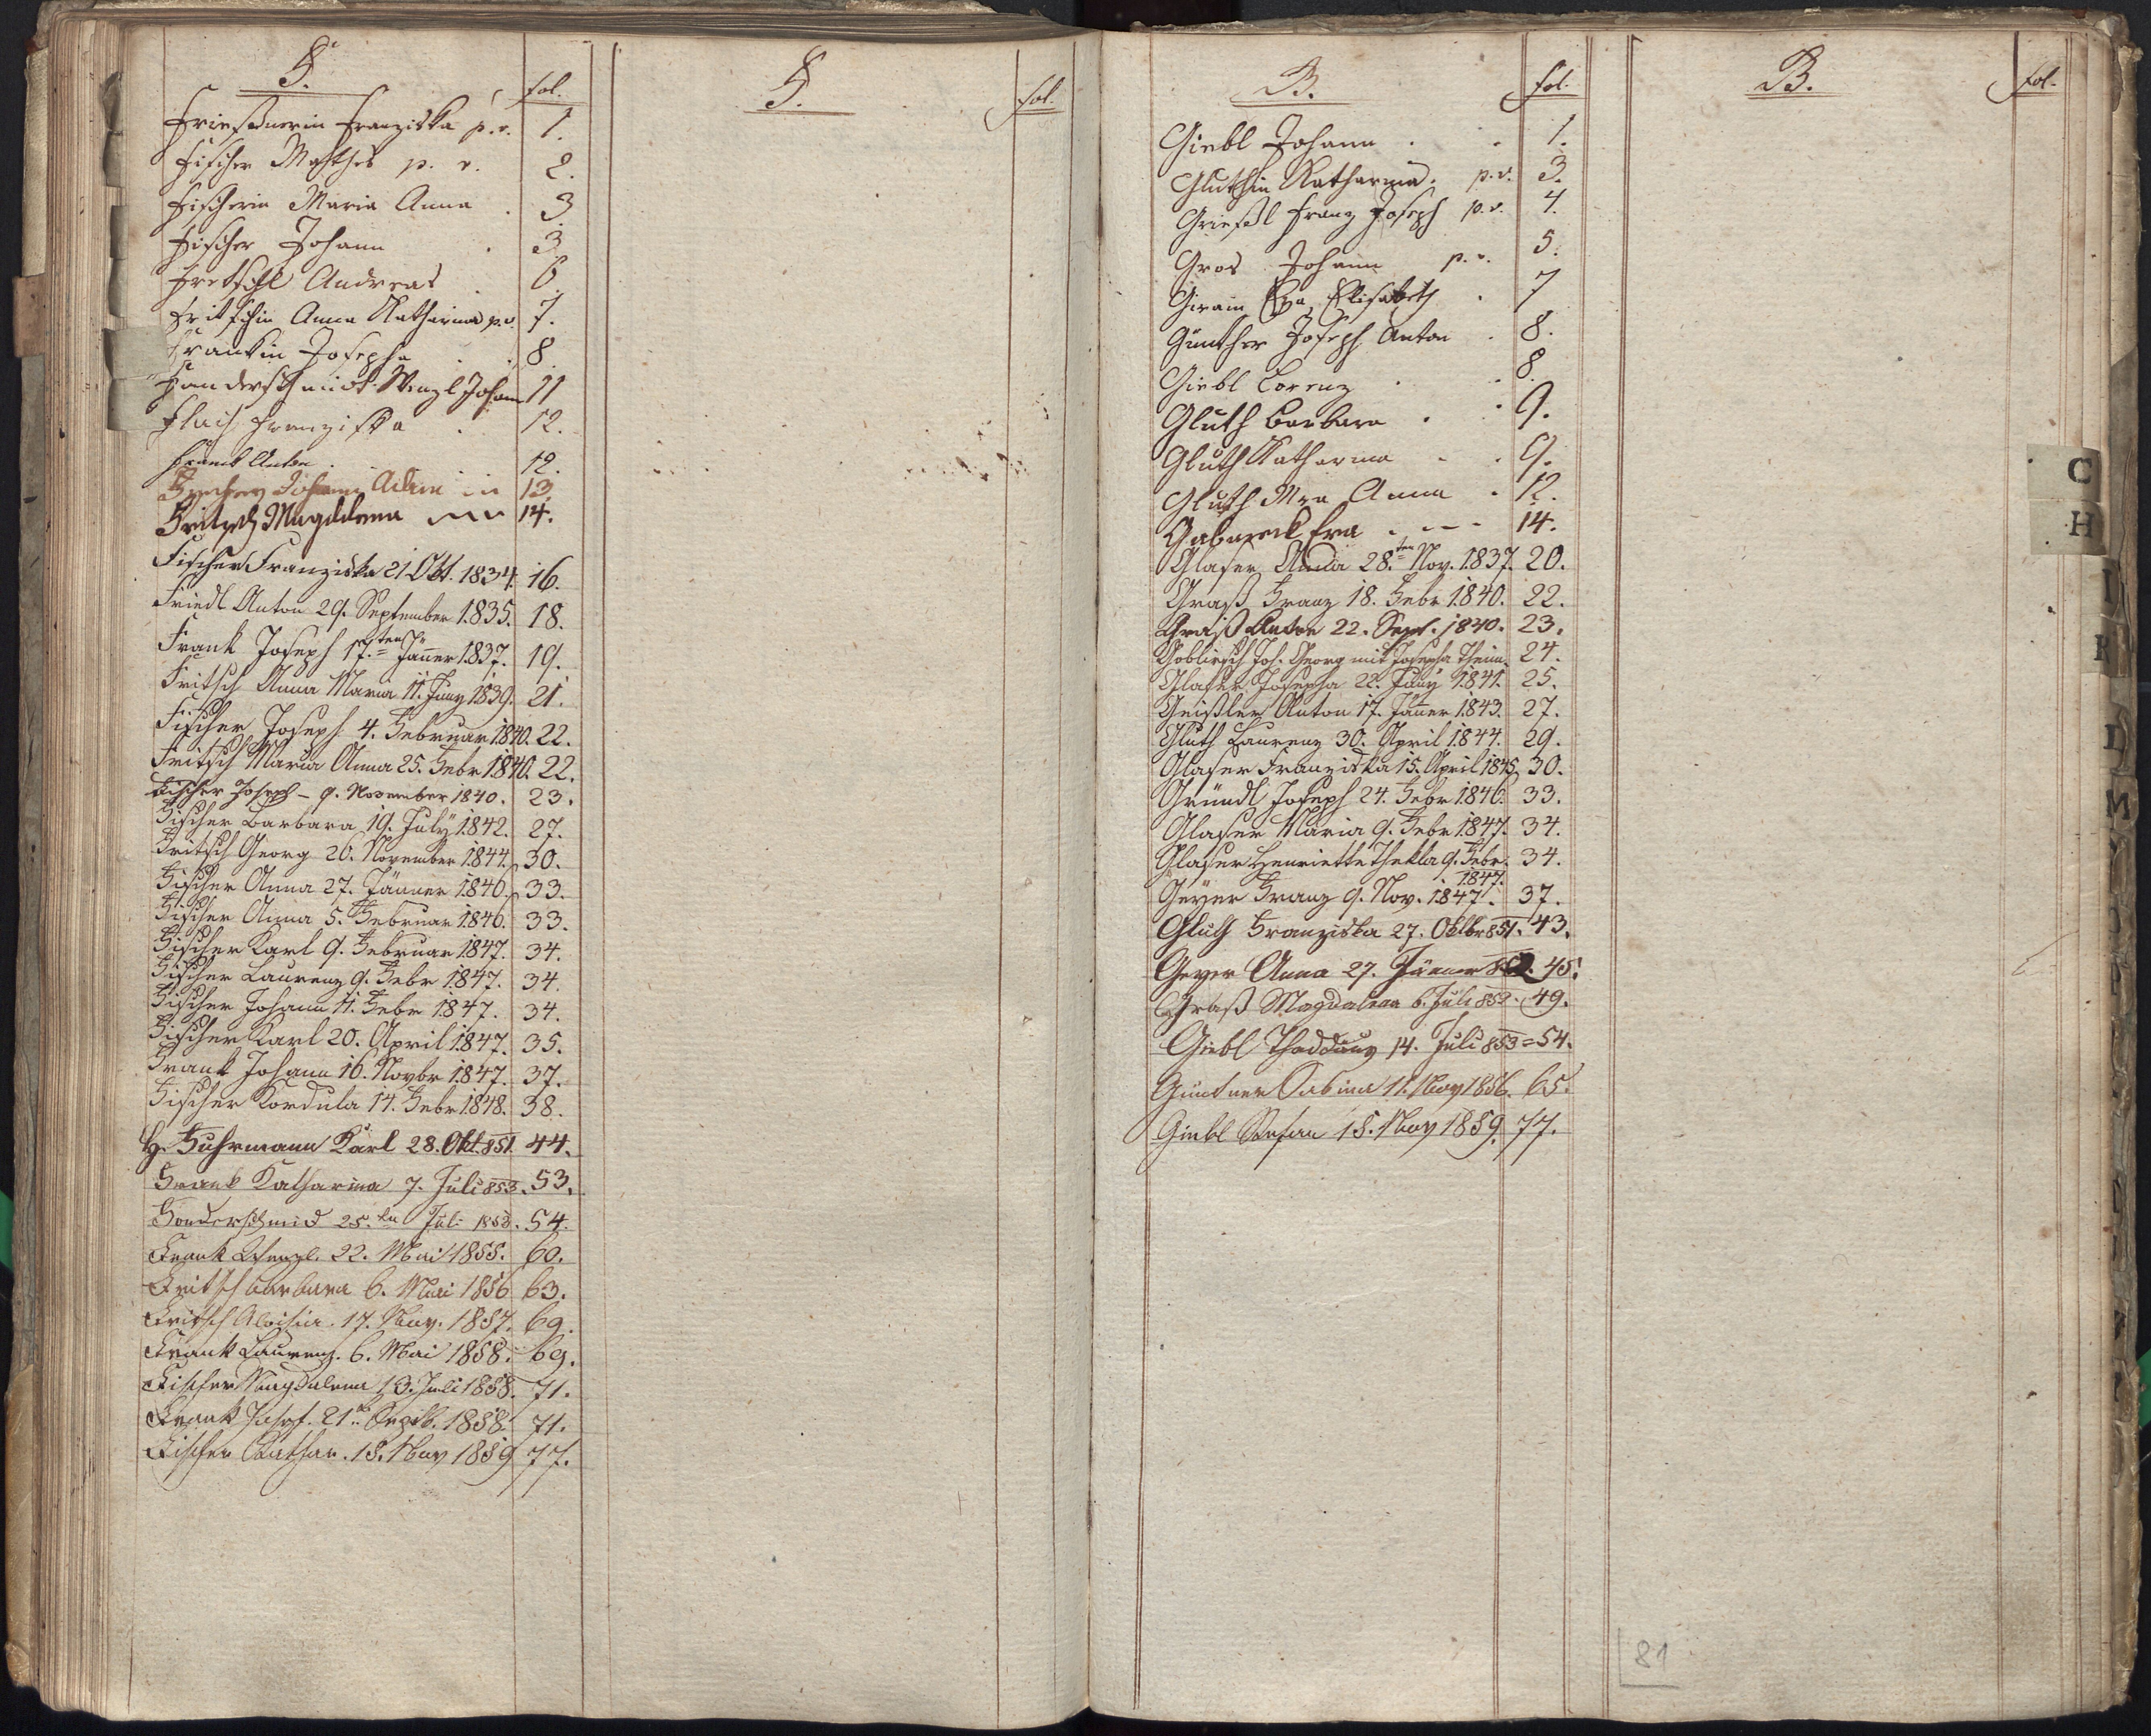 F.
fol.
Frießnerin Franziska p. v. 1.
Fischer Mathes p. v. 2.
Fischerin Maria Anna . 3
Fischer Johann . 3.
Fretschl Andreas . 6.
Fritschin Anna Katharina p.v. 7.
Frankin Josepha . . 8.
Fanderschmidt Wenzl Johann 11
Flach Franziska . 12.
Frank Anton . . 12.
Johann Adam 13.
Fritsch Magdalena 14.
Fischer Franziska 21 Okt. 1834. 16.
Friedl Anton 29. September 1835. 18.
Frank Joseph 17.ten Jänner 1837. 19.
Fritsch Anna Maria 11. Juny 1839. 21.
Fischer Joseph 4. Februar 1840. 22.
Fritsch Maria Anna 25. Febr 1840. 22.
Fischer Joseph – 9. November 1840. 23.
Fischer Barbara 19. July 1842. 27.
Fritsch Georg 26. November 1844. 30.
Fischer Anna 27. Jänner 1846. 33.
Fischer Anna 5. Februar 1846. 33.
Fischer Karl 9. Februar 1847. 34.
Fischer Laurenz 9. Febr 1847. 34.
Fischer Johann 11. Febr 1847. 34.
Fischer Karl 20. April 1847. 35.
Frank Johann 16. Novbr 1847. 37.
Fischer Kordula 14. Febr 1848. 38.
H. Fuhrmann Karl 28. Okt. 851. 44.
Frank Katharina 7. Juli 853. 53.
Fonderschmid 25.ten Juli 1853. 54.
Frank Wenzl. 22. Mai 1855. 60.
Fritsch Barbara 6. Mai 1856 63.
Fritsch Aloisia. 17. Nov. 1857. 69.
Frank Laurenz. 6. Mai 1858. 69.
Fischer Magdalena 13. Juli 1858. 71.
Frank Josef. 21. Septb. 1858. 71.
Fischer Kathar. 15. Nov 1859 77.
F.
fol.
G.
fol.
Giebl Johann . . 1.
Gluthin Katharina. p.v. 3.
Grießl Franz Joseph p.v. 4.
Gros Johann p. v. 5.
Giram Eva Elisabeth . 7
Günther Joseph Anton . 8.
Giebl Lorenz . . 8.
Gluth Barbara . . 9.
Gluth Katharina - . 9.
Gluth Mra Anna . 12.
Eva . - - - 14.
Glaser Anna 28.ten Nov. 1837. 20.
Graß Franz 18. Febr 1840. 22.
Graß Anton 22. Sept. 1840. 23.
Goblirsch Joh. Georg mit Josepha Theim. 24.
Glaser Josepha 22. Juny 1841. 25.
Geißler Anton 17. Jänner 1843. 27.
Gluth Laurenz 30. April 1844. 29.
Glaser Franziska 15. April 1845. 30.
Gründl Joseph 24. Febr 1846. 33.
Glaser Maria 9. Febr 1847. 34.
Glaser Henriette Thekla 9. Febr. 1847. 34.
Geyer Franz 9. Nov. 1847. 37.
Gluth Franziska 27. Oktbr 851. 43.
Geyer Anna 27. Jänner 852. 45.
Graß Magdalena 6. Juli 852. 49.
Giebl Thaddäus 14. Juli 853 = 54.
Güntner Sabina 11. Nov 1856. 65.
Giebl Stefan 15. Nov 1859. 77.
G.
fol.
C
H
I
K
L
M
81